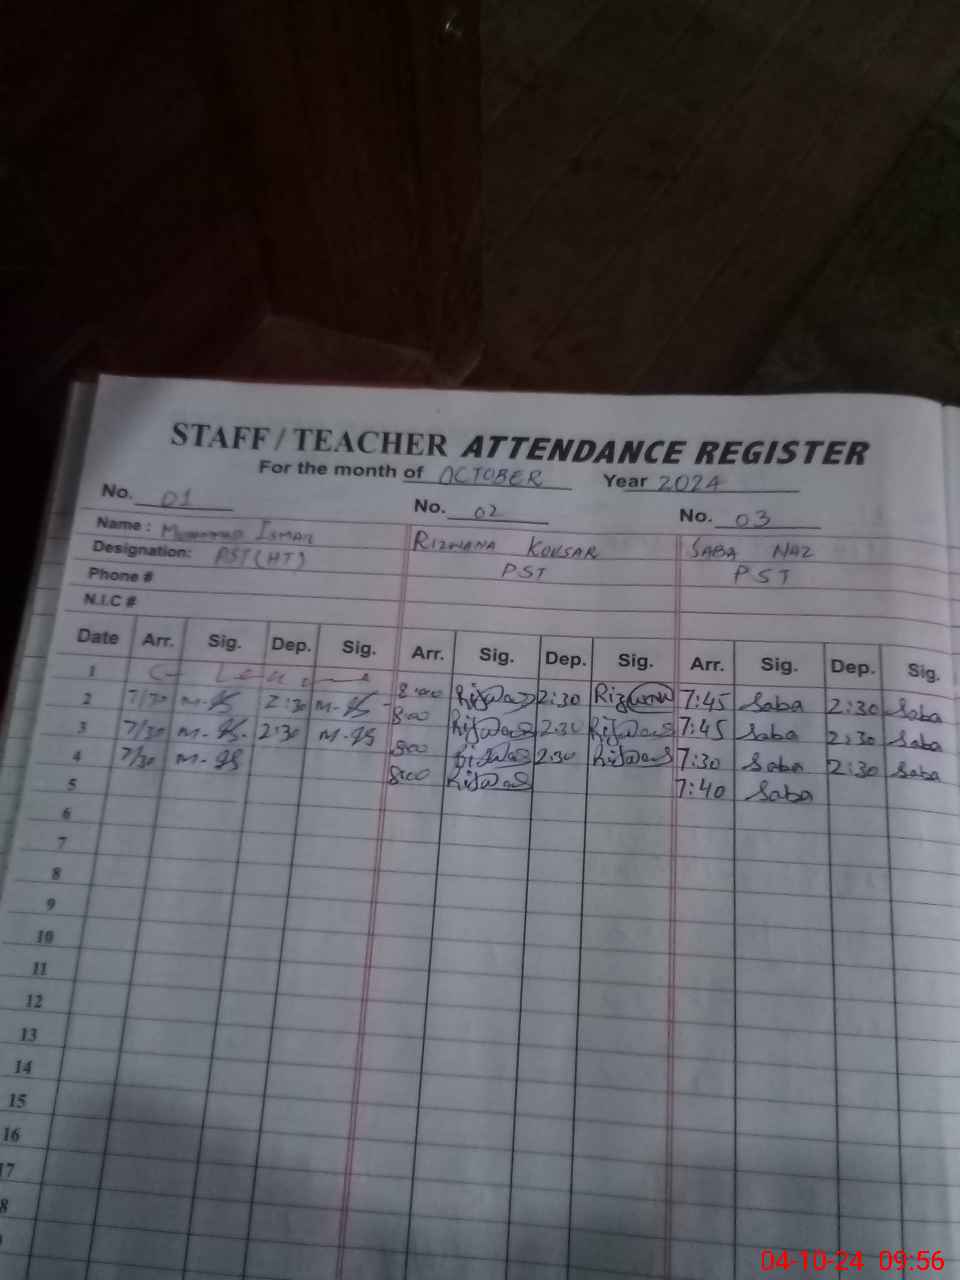 STAFF / TEACHER ATTENDANCE REGISTER
For the month of OCTOBER Year 2024
No. 01 No. 02 No. 03
Name : Isman RIZWANA KOUSAR SABA NAZ
Designation: PST(HT) PST PST
Phone #
N.I.C #
Date Arr. Sig. Dep. Sig. Arr. Sig. Dep. Sig. Arr. Sig. Dep. Sig.
1 8:00 2:30 7:45 Saba 2:30 Saba
2 7/30 2:30 8:00 2:30 7:45 Saba 2:30 Saba
3 7/30 2:30 8:00 2:30 7:30 Saba 2:30 Saba
4 7/30 8:00 7:40 Saba
5
6
7
8
9
10
11
12
13
14
15
16
17
8
04-10-24 09:56